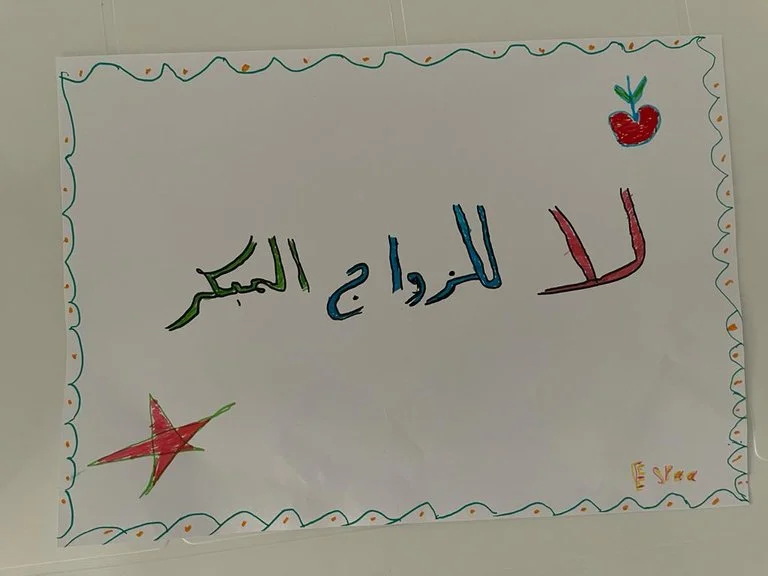 لا للزواج المبكر
Esraa